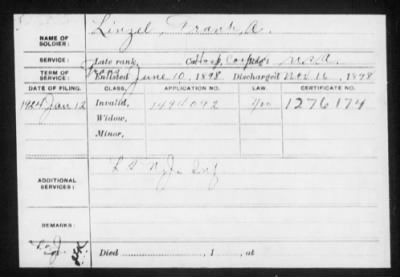 NAME OF SOLDIER: Linzel, Frank A.
SERVICE: Late rank, Hosp. Corps U.S.A.
TERM OF SERVICE: Enlisted June 10, 1898 Discharged Nov. 16, 1898
DATE OF FILING. CLASS. APPLICATION NO. LAW. CERTIFICATE NO.
1924 Jan 12 Invalid, 1494092 1276174
Widow,
Minor,
ADDITIONAL SERVICES: N.J. Inf
REMARKS:
Died , 1 , at